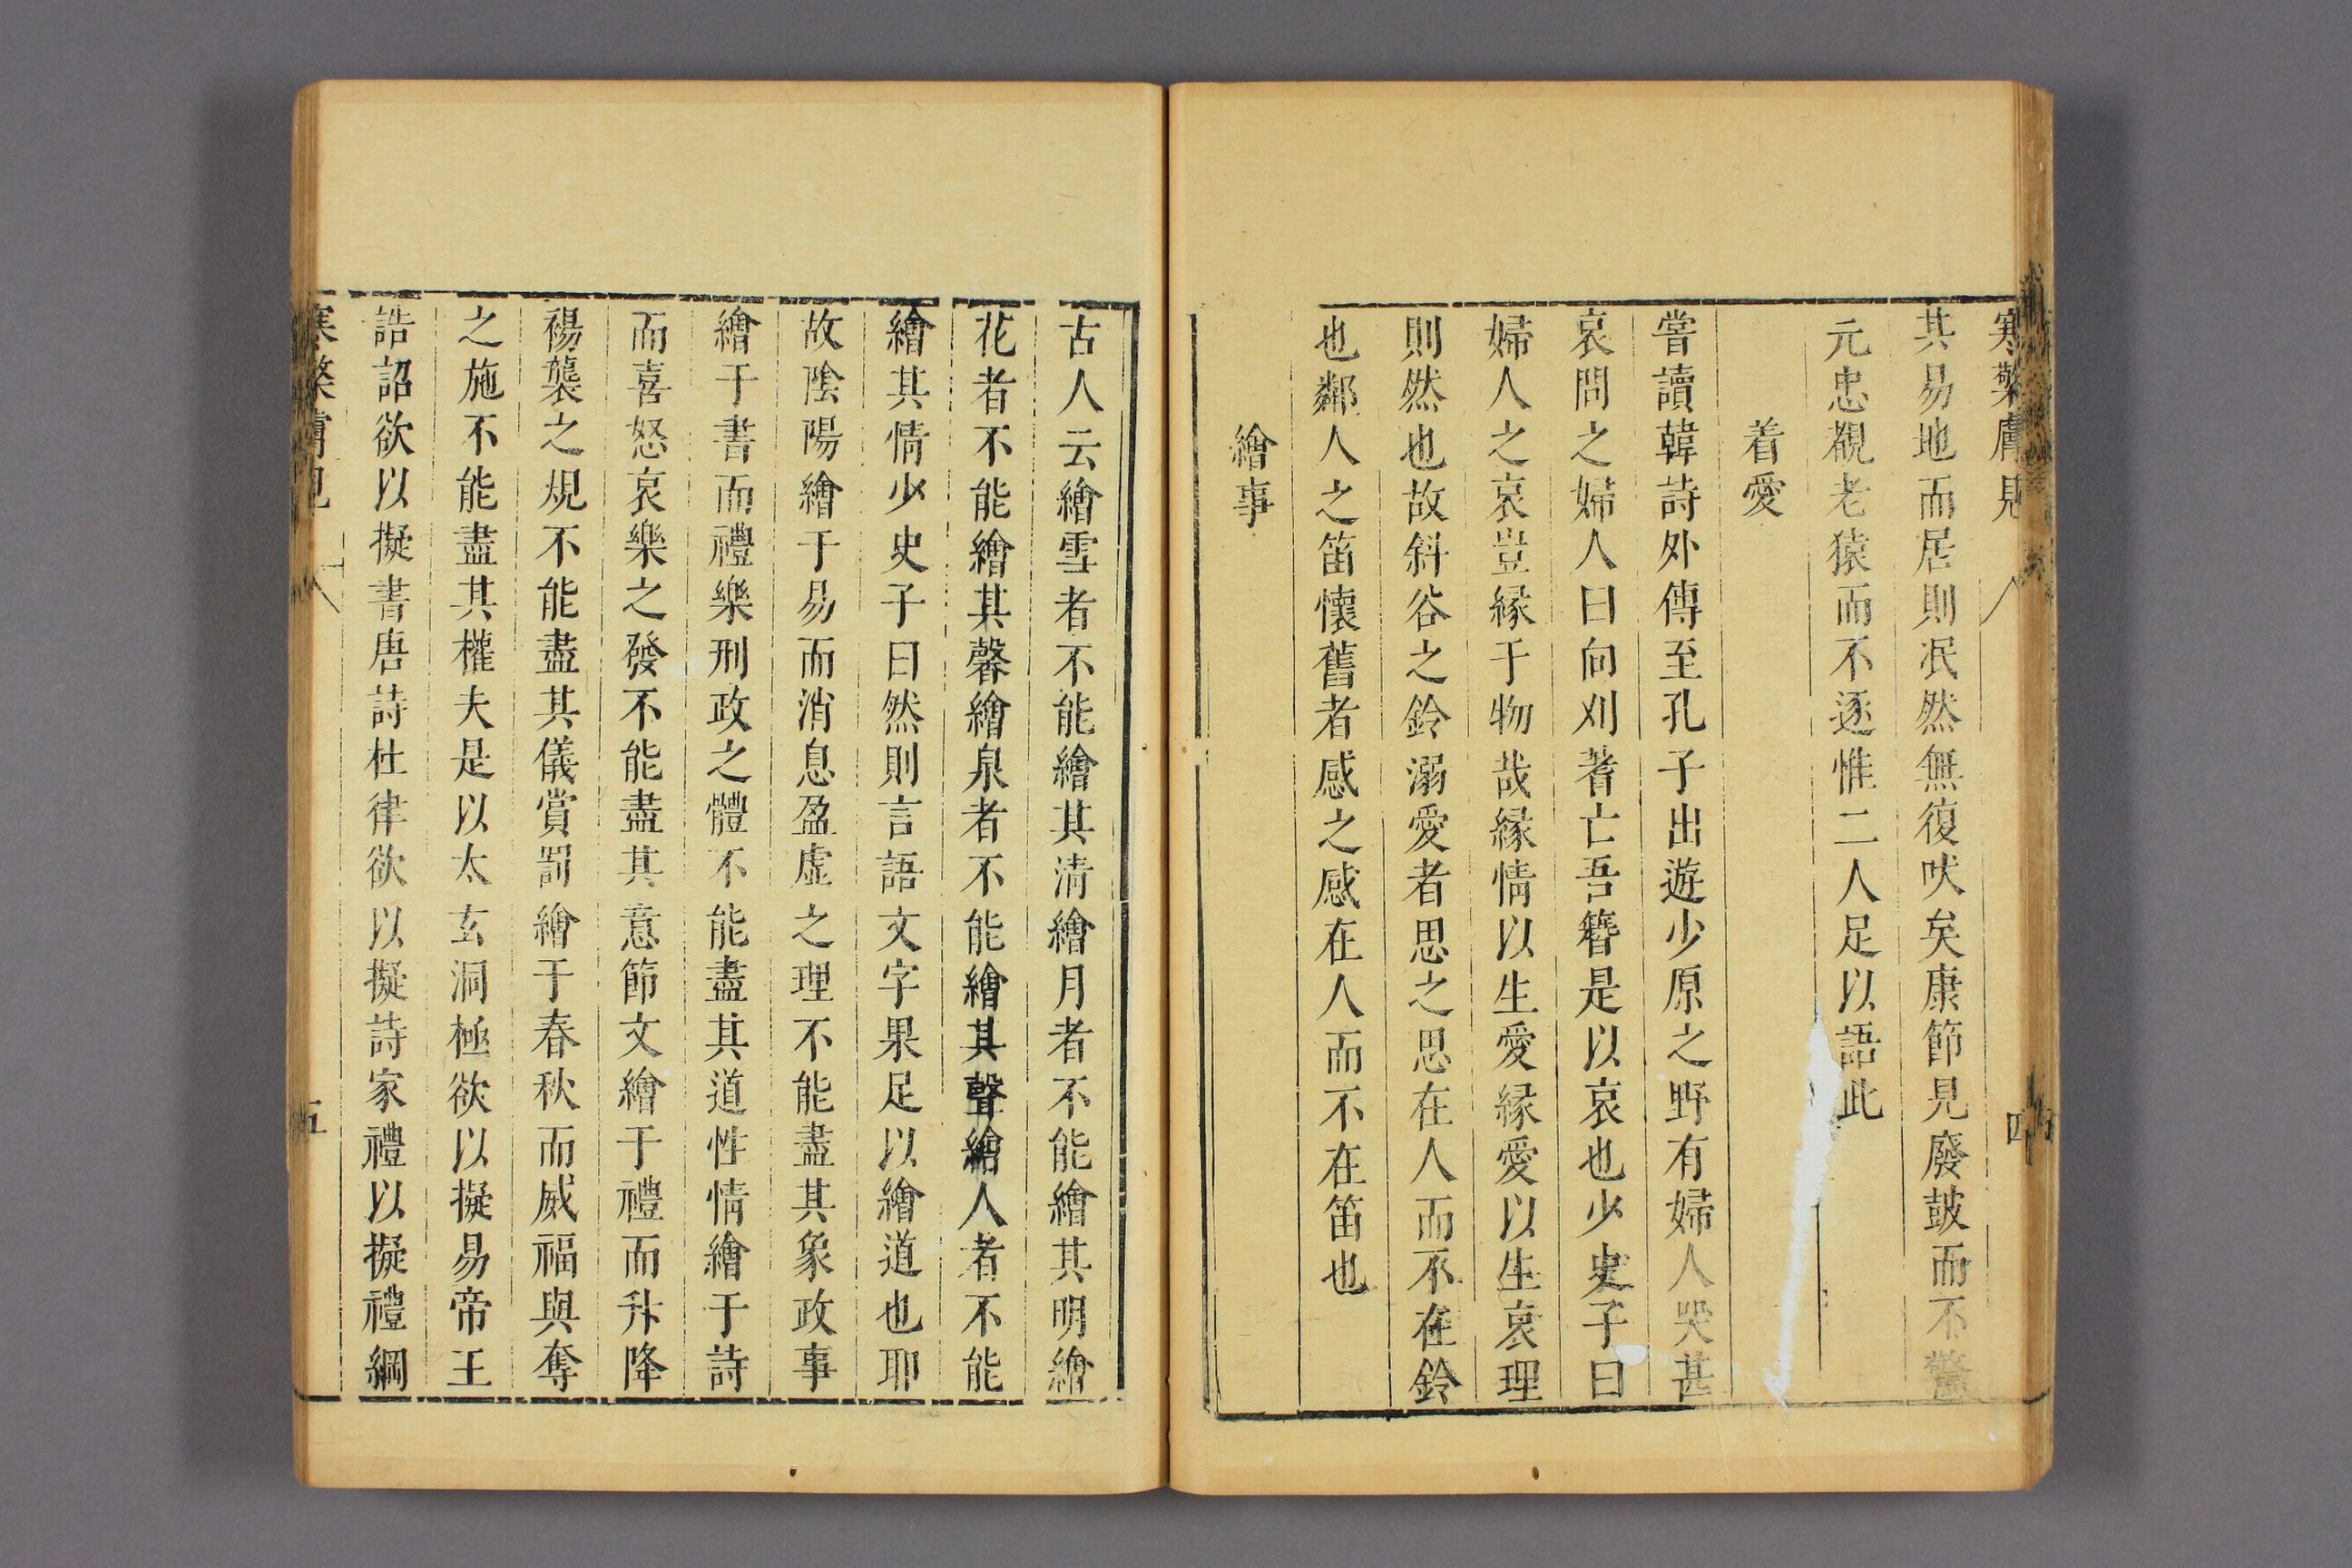 寒檠膚見
四
其易地而居則泯然無復吠矣康節見廢鼓而不驚
元忠覩老猿而不逐惟二人足以語此
着愛
嘗讀韓詩外傳至孔子出遊少原之野有婦人哭甚
哀問之婦人曰向刈蓍亡吾簪是以哀也少史子曰
婦人之哀豈緣于物哉緣情以生愛緣愛以生哀理
則然也故斜谷之鈴溺愛者思之思在人而不在鈴
也鄰人之笛懷舊者感之感在人而不在笛也
繪事
古人云繪雪者不能繪其清繪月者不能繪其明繪
花者不能繪其馨繪泉者不能繪其聲繪人者不能
繪其情少史子曰然則言語文字果足以繪道也耶
故陰陽繪于易而消息盈虛之理不能盡其象政事
繪于書而禮樂刑政之體不能盡其道性情繪于詩
而喜怒哀樂之發不能盡其意節文繪于禮而升降
裼襲之規不能盡其儀賞罰繪于春秋而威福與奪
之施不能盡其權夫是以太玄洞極欲以擬易帝王
誥詔欲以擬書唐詩杜律欲以擬詩家禮以擬禮綱
寒檠膚見
五